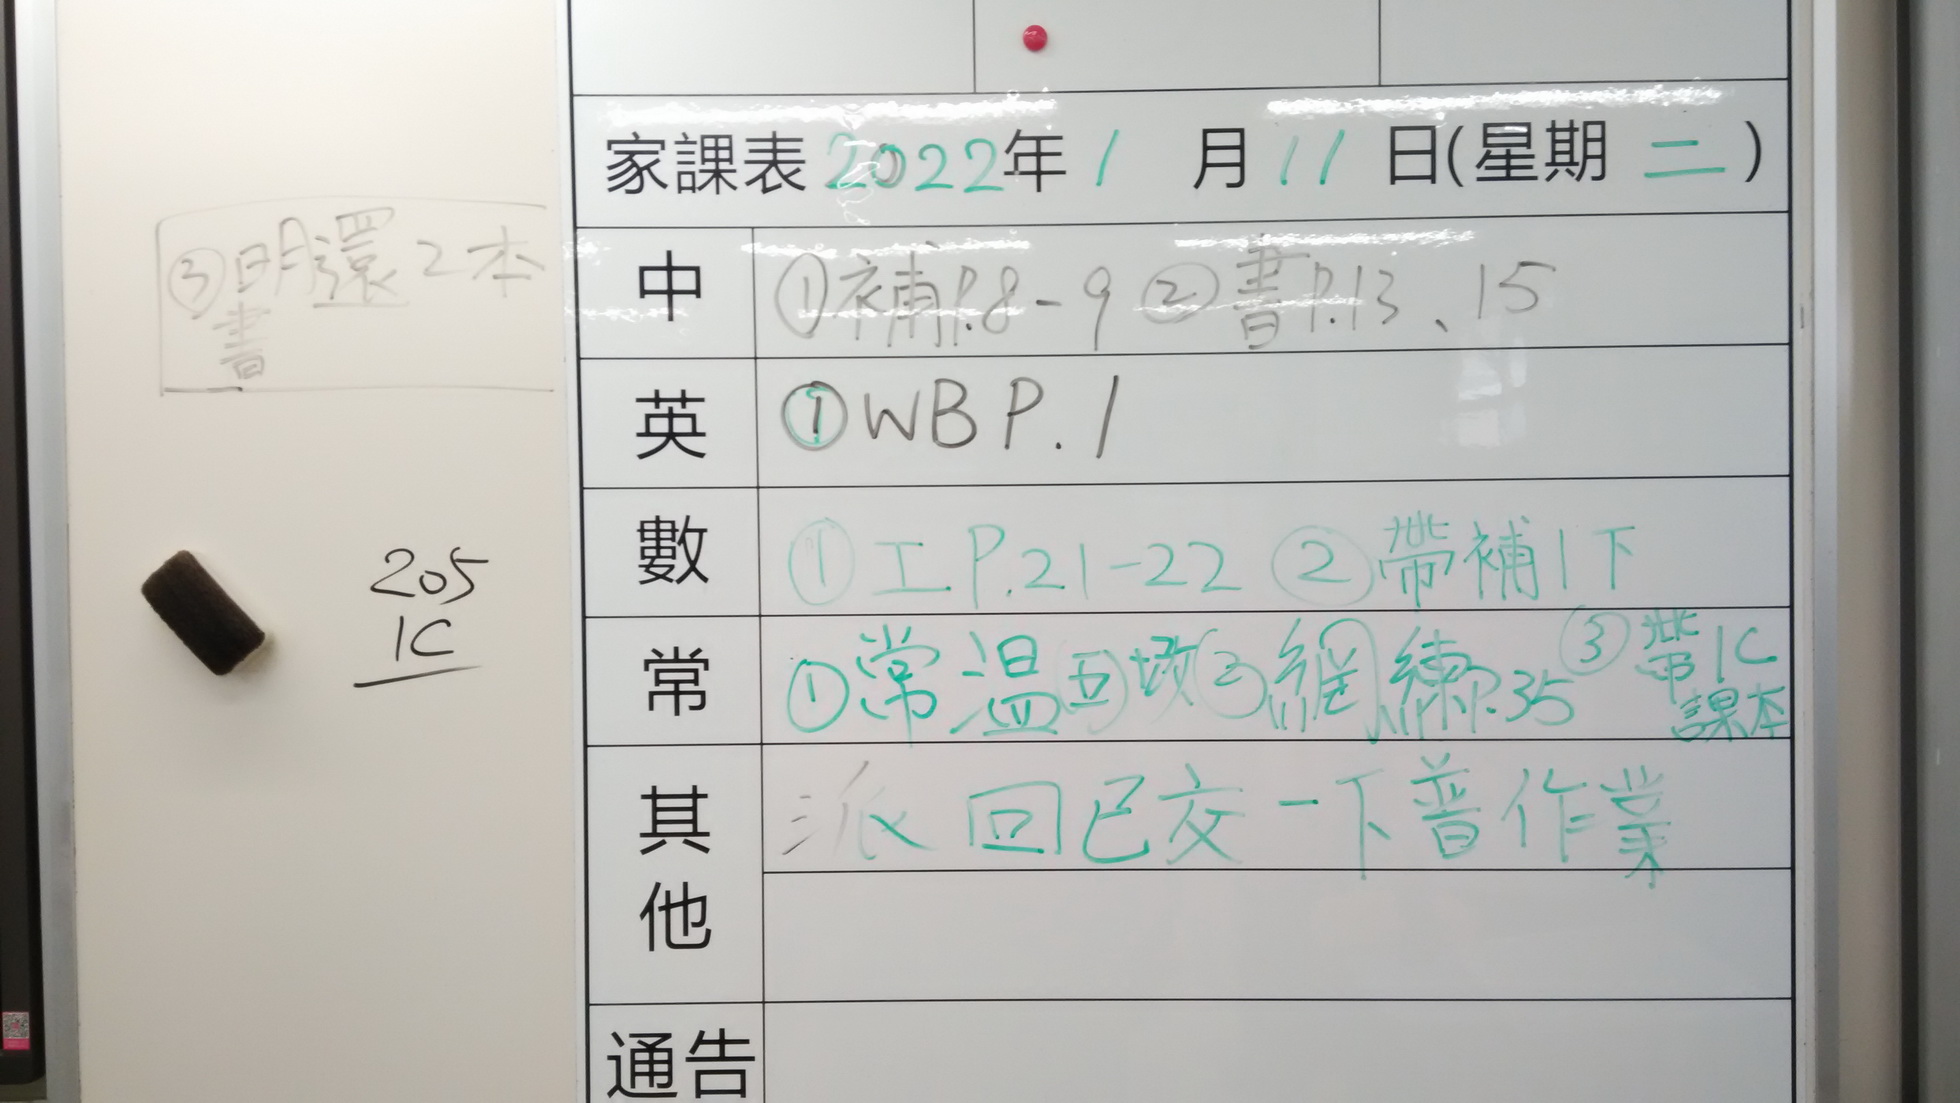 家課表 2022年 1 月 11 日(星期 二)
中 ①補P.8-9 ②書P.13、15
③明還2本
書
英 ①WB P.1
數 ①工P.21-22 ②帶補1下
205
1C
常 ①常溫㊄ ②網練P.35 ③帶1C
課本
其他 派回已交一下普作業
通告